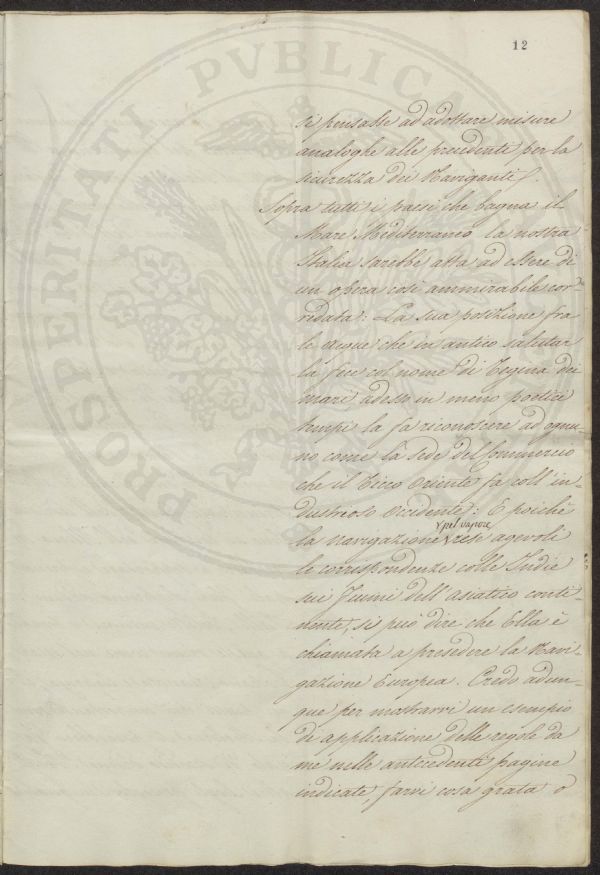 12
si pensasse ad adottare misure
analoghe alle precedenti per la
sicurezza dei Naviganti.
Sopra tutti i paesi che bagna il
Mare Mediterraneo la nostra
Italia sarebbe atta ad essere di
un opera così ammirabile cor-
redata: La sua posizione fra
le acque che in antico salutar
la fece col nome di Regina dei
mari adesso in meno poetici
tempi la fa riconoscere ad ognu
no come la sede del Commercio
che il Ricco Oriente fa coll'in-
dustrioso Occidente: E poichè
pel vapore
la navigazione rese agevoli
le corrispondenze colle Indie
sui fiumi dell'asiatico conti-
nente, si può dire che Ella è
chiamata a presedere la Navi-
gazione Europea. Credo adun-
que per mostrarvi un esempio
di applicazione delle regole da
me nelle antecedenti pagine
indicate, farvi cosa grata o
PROSPERITATI PVBLICAE